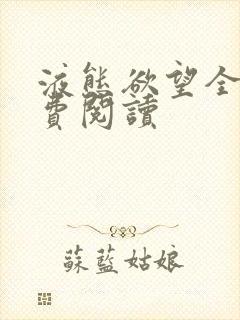 液態欲望全
費閱讀
蘇藍姑娘